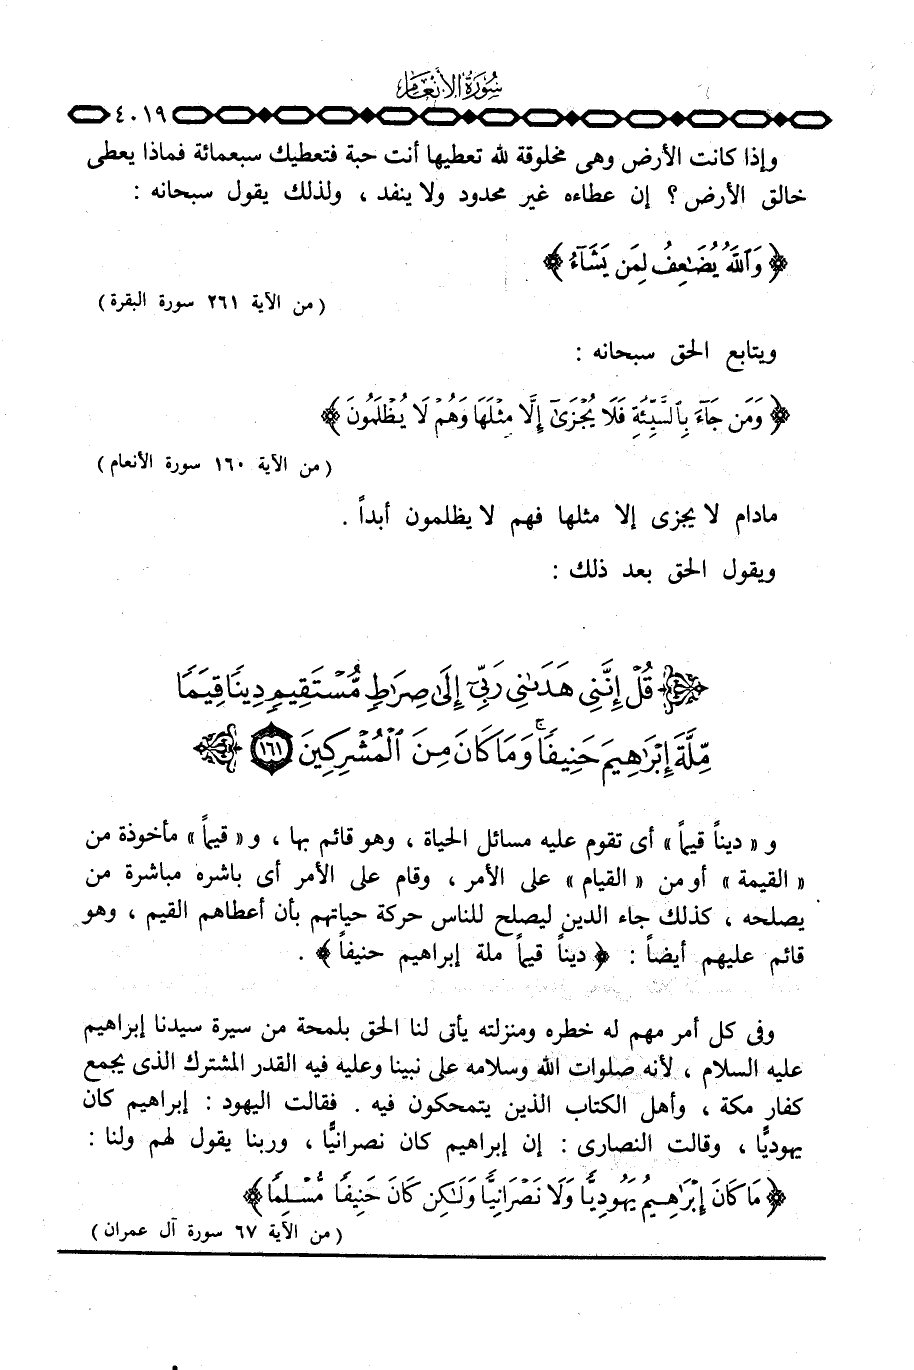 سُورَةُ الأَنْعَامِ
٤٠١٩
وإذا كانت الأرض وهى مخلوقة لله تعطيها أنت حبة فتعطيك سبعمائة فماذا يعطى
خالق الأرض ؟ إن عطاءه غير محدود ولا ينفد ، ولذلك يقول سبحانه :
﴿ وَٱللَّهُ يُضَٰعِفُ لِمَن يَشَآءُ ﴾
( من الآية ٢٦١ سورة البقرة )
ويتابع الحق سبحانه :
﴿ وَمَن جَآءَ بِٱلسَّيِّئَةِ فَلَا يُجْزَىٰٓ إِلَّا مِثْلَهَا وَهُمْ لَا يُظْلَمُونَ ﴾
( من الآية ١٦٠ سورة الأنعام )
مادام لا يجزى إلا مثلها فهم لا يظلمون أبداً .
ويقول الحق بعد ذلك :
﴿ قُلْ إِنَّنِى هَدَىٰنِى رَبِّىٓ إِلَىٰ صِرَٰطٍ مُّسْتَقِيمٍ دِينًا قِيَمًا
مِّلَّةَ إِبْرَٰهِيمَ حَنِيفًا ۚ وَمَا كَانَ مِنَ ٱلْمُشْرِكِينَ ١٦١ ﴾
و « ديناً قيماً » أى تقوم عليه مسائل الحياة ، وهو قائم بها ، و « قيماً » مأخوذة من
« القيمة » أو من « القيام » على الأمر ، وقام على الأمر أى باشره مباشرة من
يصلحه ، كذلك جاء الدين ليصلح للناس حركة حياتهم بأن أعطاهم القيم ، وهو
قائم عليهم أيضاً : ﴿ ديناً قيماً ملة إبراهيم حنيفاً ﴾ .
وفى كل أمر مهم له خطره ومنزلته يأتى لنا الحق بلمحة من سيرة سيدنا إبراهيم
عليه السلام ، لأنه صلوات الله وسلامه على نبينا وعليه فيه القدر المشترك الذى يجمع
كفار مكة ، وأهل الكتاب الذين يتمحكون فيه . فقالت اليهود : إبراهيم كان
يهوديًّا ، وقالت النصارى : إن إبراهيم كان نصرانيًّا ، وربنا يقول لهم ولنا :
﴿ مَا كَانَ إِبْرَٰهِيمُ يَهُودِيًّا وَلَا نَصْرَانِيًّا وَلَٰكِن كَانَ حَنِيفًا مُّسْلِمًا ﴾
( من الآية ٦٧ سورة آل عمران )